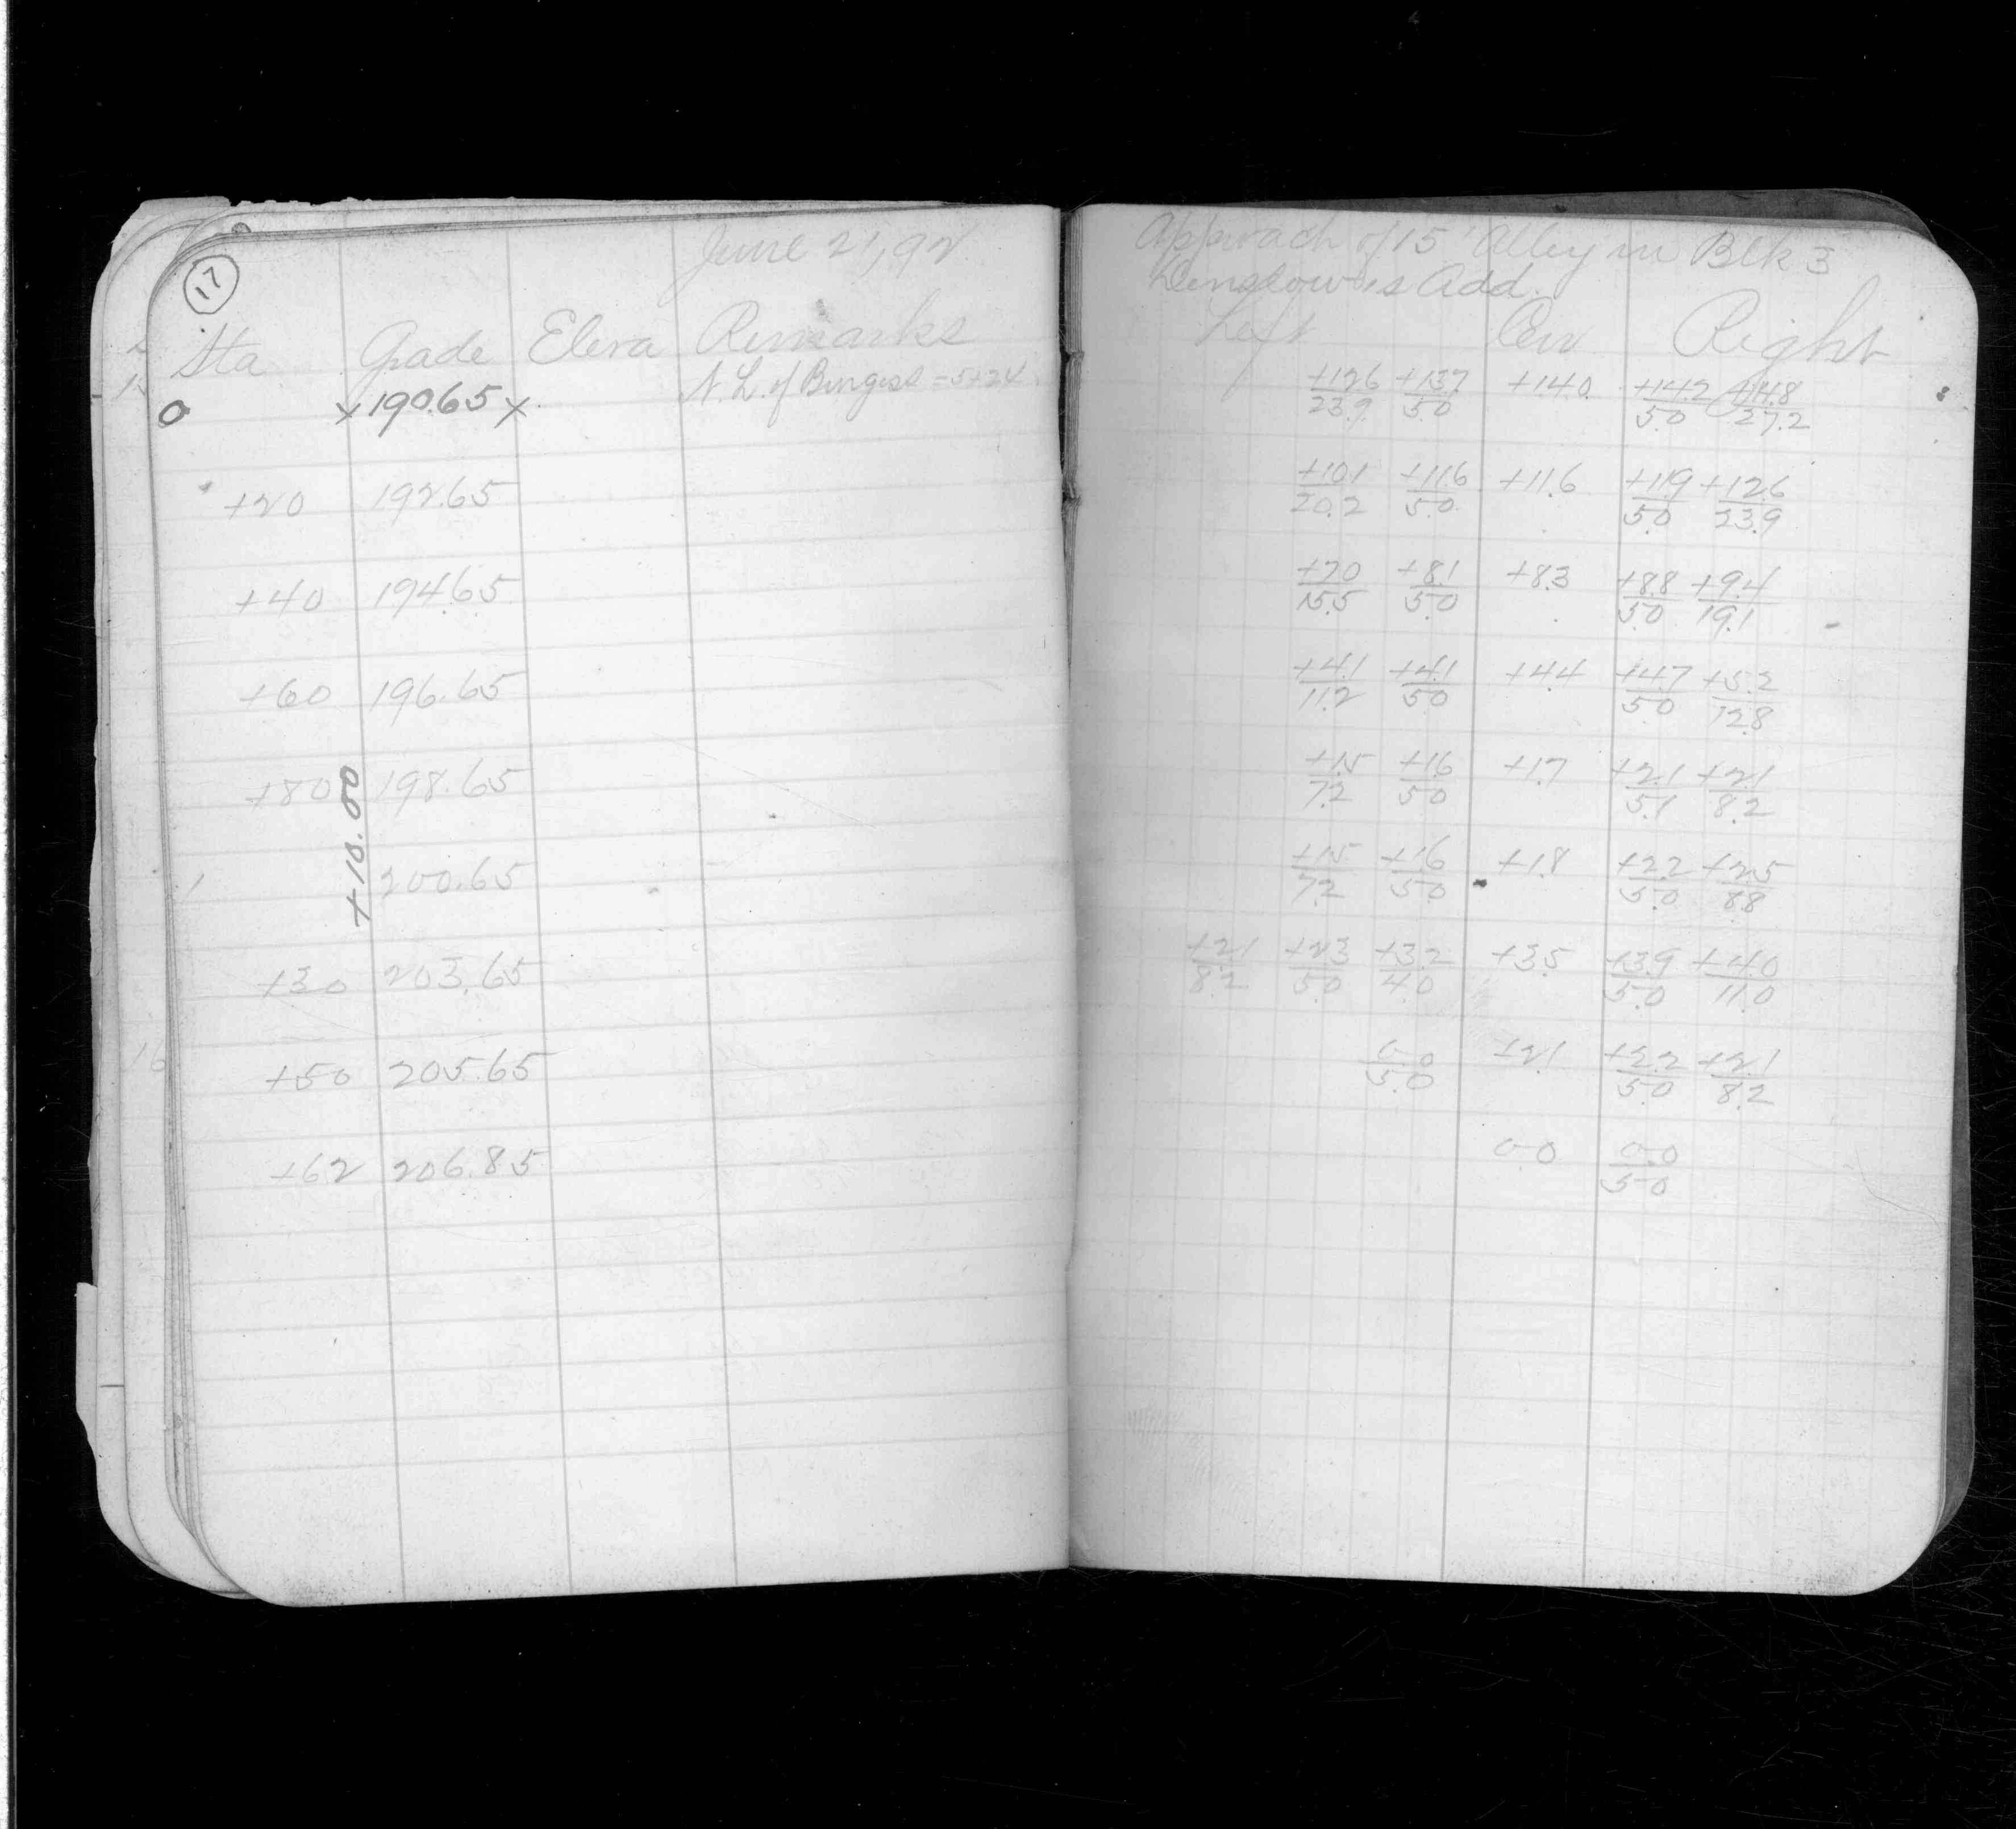 17
June 21, 92
Sta Grade Eleva Remarks
0 x 190.65 x N. L. of Burgess = 5+24
+20 192.65
+40 194.65
+60 196.65
+80 198.65
+10.00
1 200.65
+30 203.65
16
+50 205.65
+62 206.85
Approach of 15' Alley in Blk 3
Denslow's Add.
Left Cen Right
+12.6 +13.7 +14.0 +14.2 +14.8
23.9 5.0 5.0 27.2
+10.1 +11.6 +11.6 +11.9 +12.6
20.2 5.0 5.0 23.9
+7.0 +8.1 +8.3 +8.8 +9.4
15.5 5.0 5.0 19.1
+4.1 +4.1 +4.4 +4.7 +5.2
11.2 5.0 5.0 12.8
+1.5 +1.6 +1.7 +2.1 +2.1
7.2 5.0 5.1 8.2
+1.5 +1.6 +1.8 +2.2 +2.5
7.2 5.0 5.0 8.8
+2.1 +2.3 +3.2 +3.5 +3.9 +4.0
8.2 5.0 4.0 5.0 11.0
0.0 +2.1 +2.2 +2.1
5.0 5.0 8.2
0.0 0.0
5.0